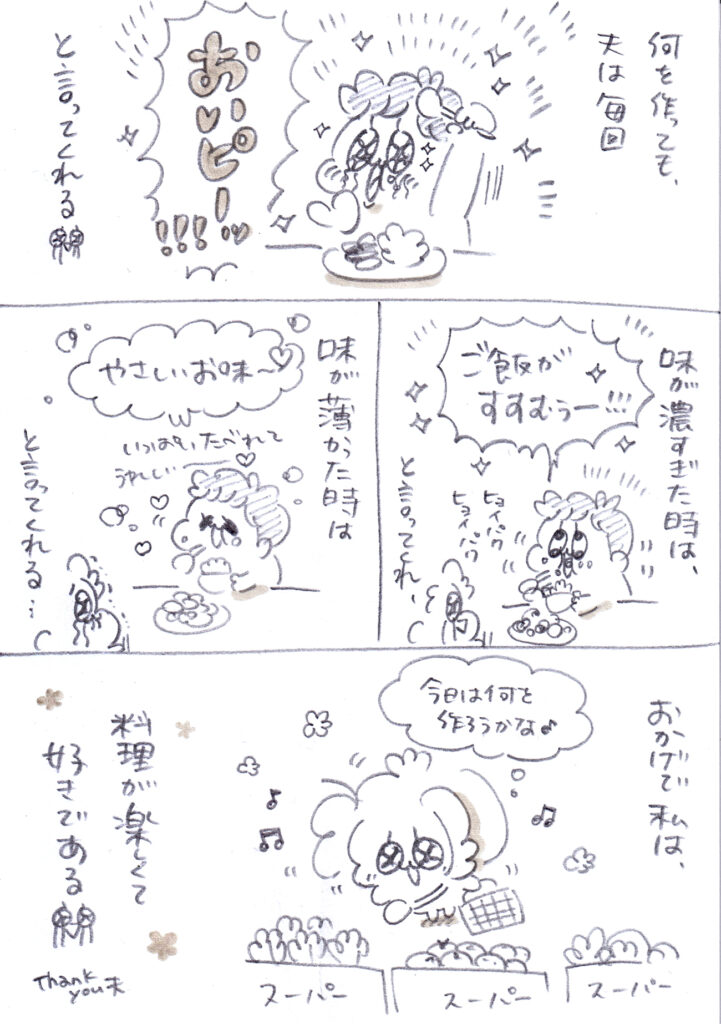 何を作っても、
夫は毎回
おいピー!!!!
と言ってくれる
味が濃すぎた時は、
ご飯が
すすむぅー!!!
ヒョイパク
ヒョイパク
と言ってくれ、
味が薄かった時は
やさしいお味〜♡
いっぱいたべれて
うれしい
と言ってくれる…
おかげで私は、
今日は何を
作ろうかな♪
料理が楽しくて
好きである
スーパー
スーパー
スーパー
Thank
you夫